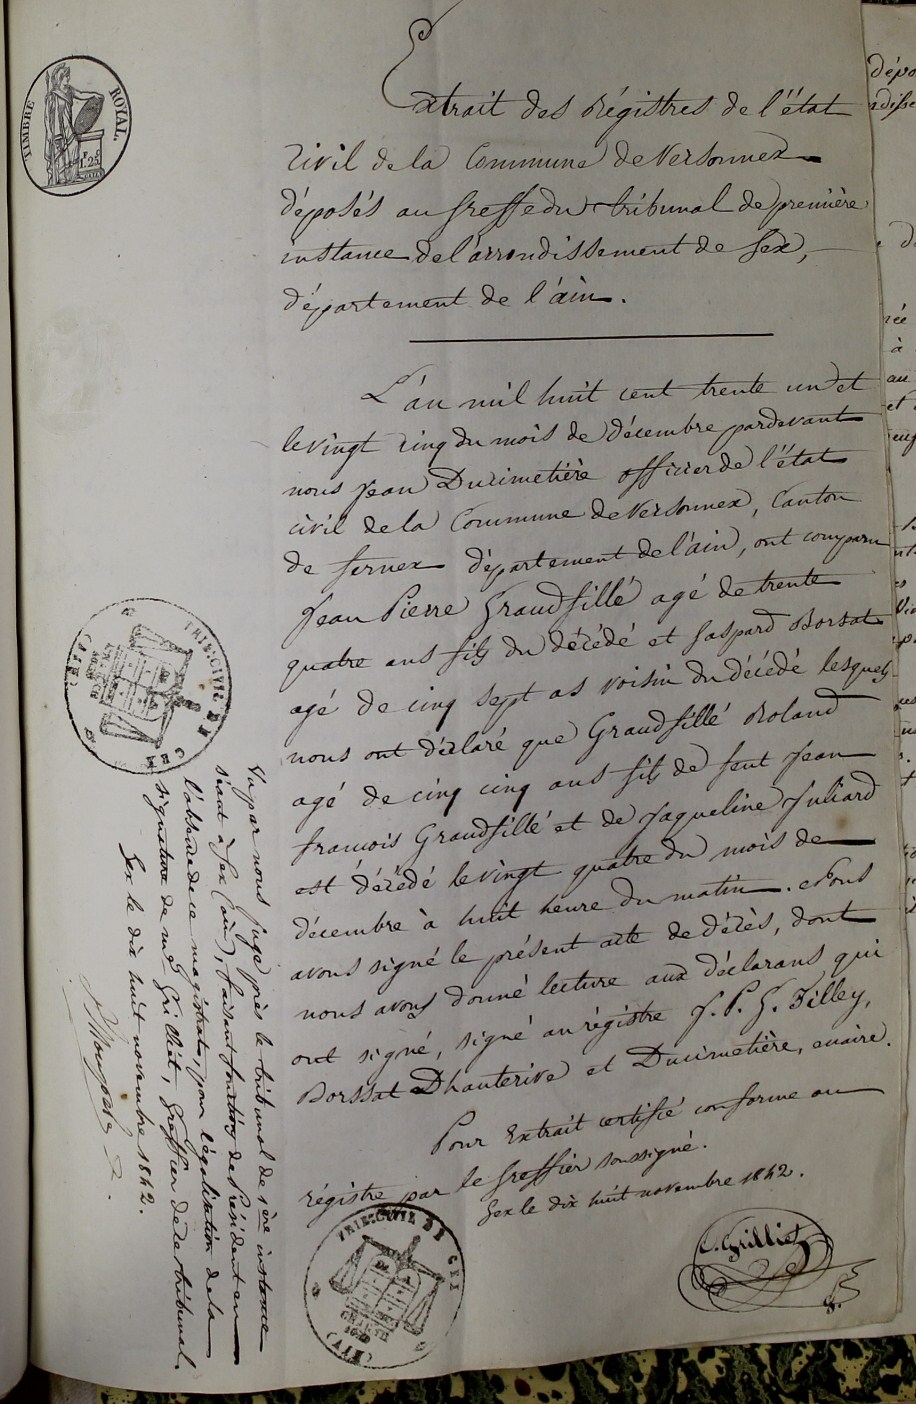 TIMBRE ROYAL.
1F. 25
Extrait des Régistres de l'état
Civil de la Commune de Versonnex
déposés au Greffe du tribunal de première
instance de l'arrondissement de Gex,
département de l'ain.
L'an mil huit cent trente un et
le vingt cinq du mois de décembre pardevant
nous Jean Ducimetière officier de l'état
civil de la Commune de Versonnex, Canton
de fernex département de l'ain, ont comparu
Jean Pierre Grandfillé agé de trente
quatre ans fils du décédé et Gaspard Borsat
agé de cinq sept as voisin du décédé lesquels
nous ont déclaré que Grandfillé Roland
agé de cinq cinq ans fils de feut Jean
francois Grandfillé et de Jaqueline Juliard
est décédé le vingt quatre du mois de
décembre à huit heure du matin. Nous
avons signé le présent acte de décès, dont
nous avons donné lecture aux déclarans qui
ont signé, signé au régistre J. P. G. Filley,
Borssat Dhauterive et Ducimetière, maire.
Pour Extrait certifié conforme au
régistre par le Greffier soussigné.
Gex le dix huit novembre 1842.
C. Grilliet
TRIB: CIVIL DE GEX
(AIN)
CHARTE
1830
Vu par nous Juge près le tribunal de 1ère instance
séant à Gex (ain), faisant fonctions de Président en
l'absence de ce magistrat, pour légalisation de la
signature de Mr Grilliet, Greffier de ce tribunal.
Gex le dix huit novembre 1842.
TRIB: CIVIL DE GEX
(AIN)
CHARTE
1830